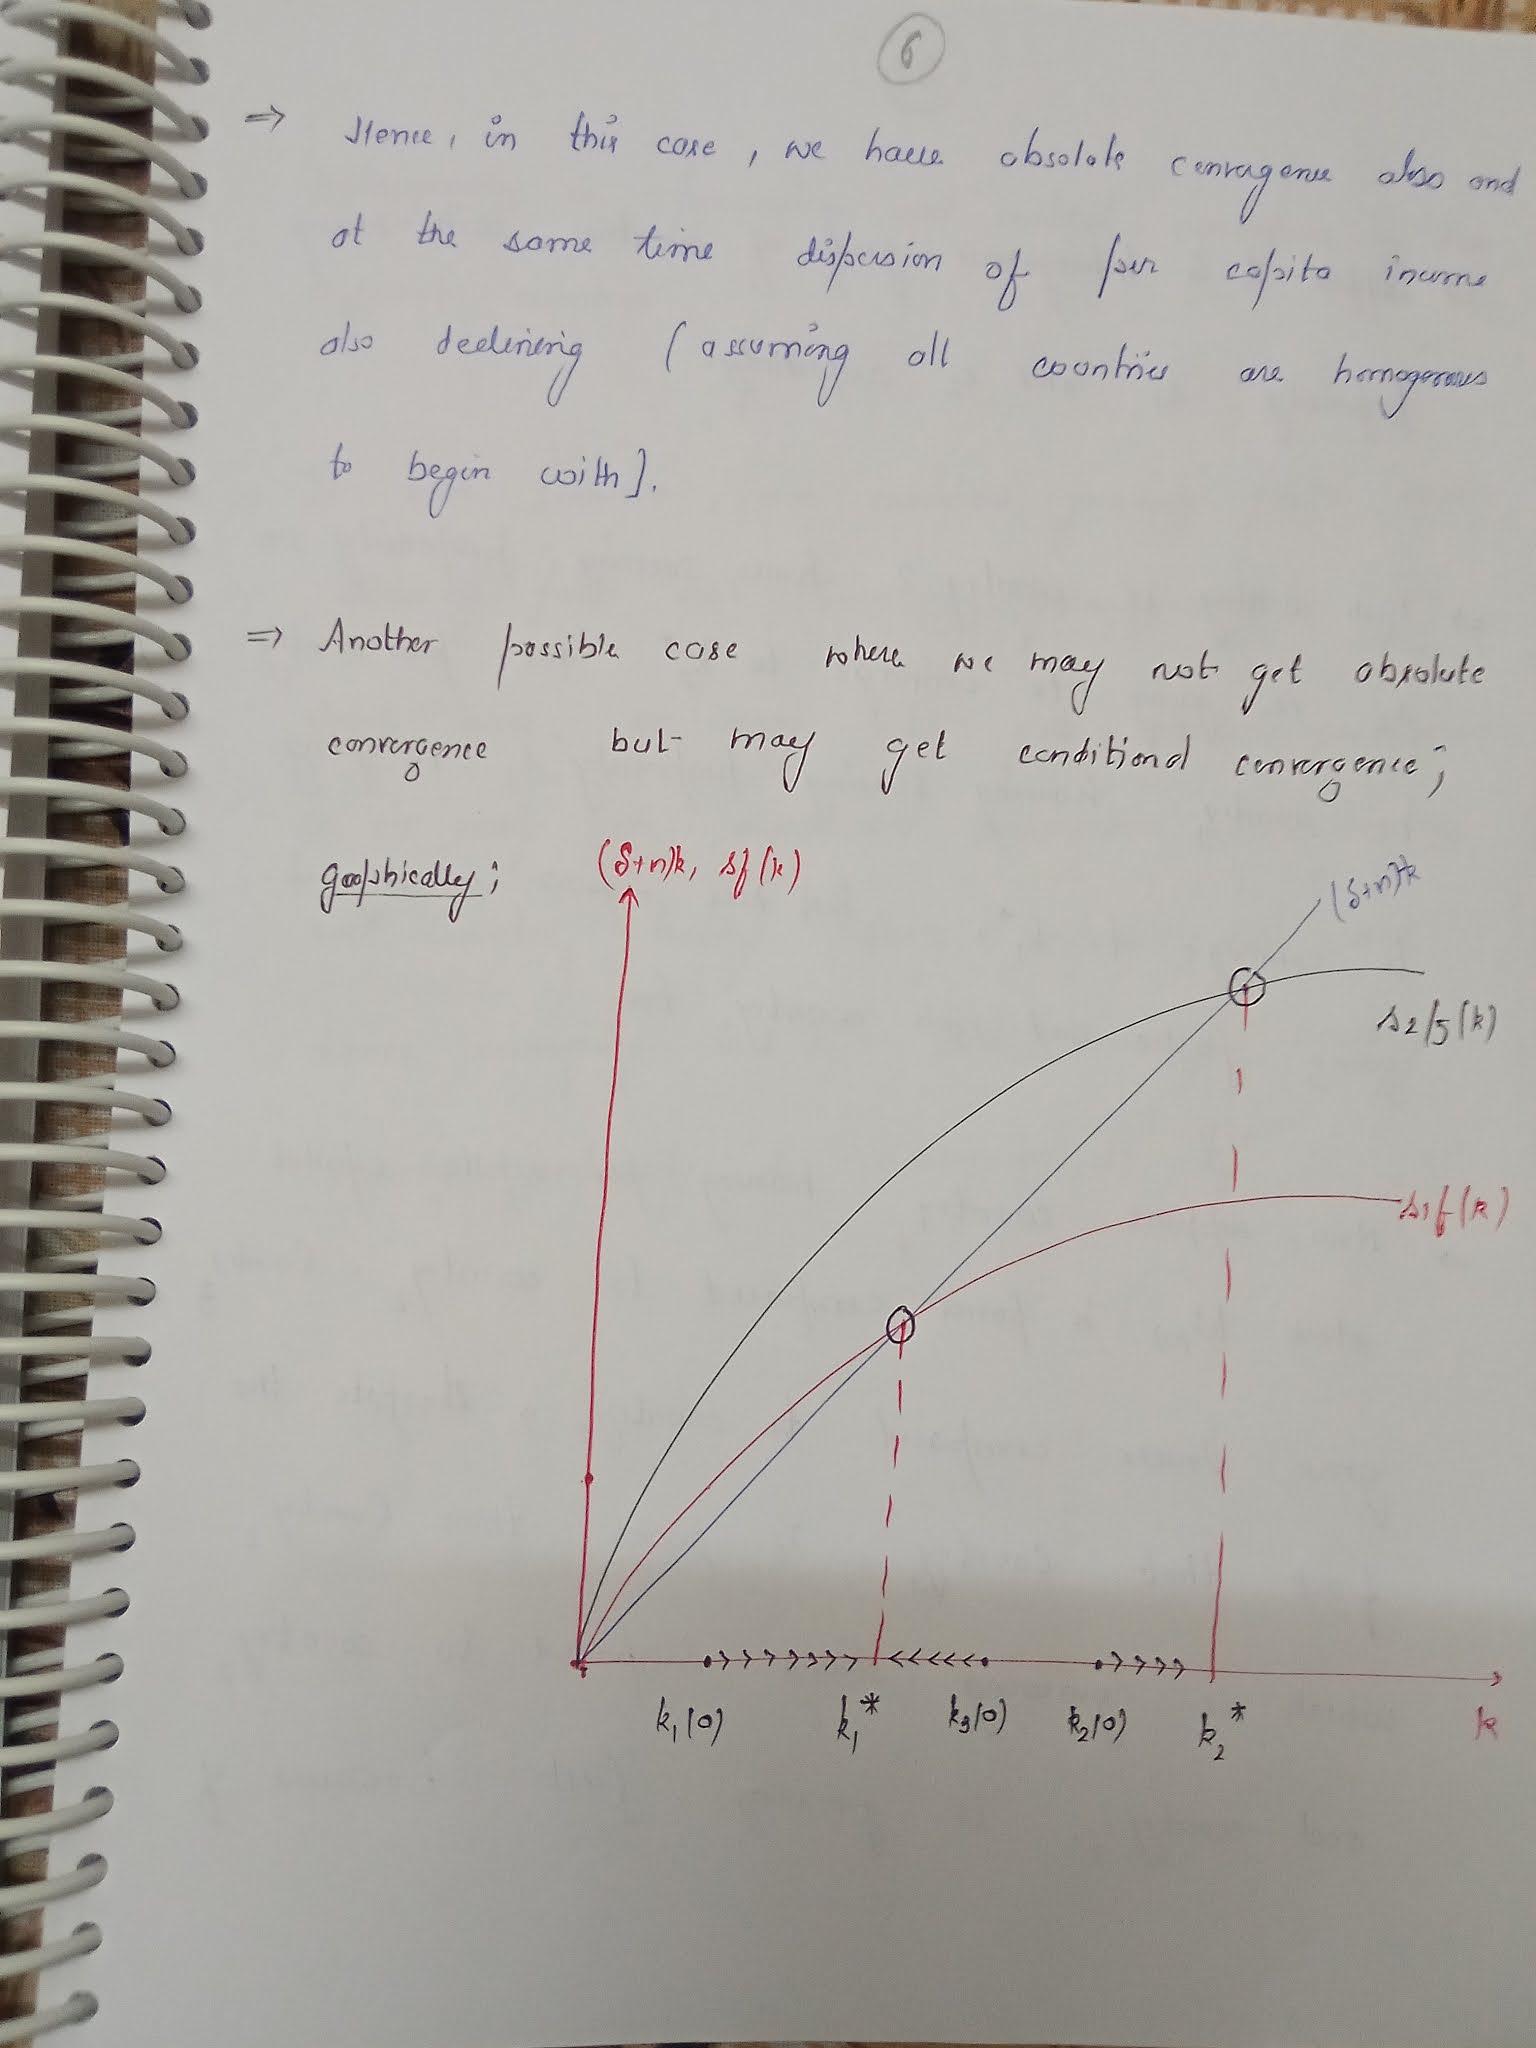 6
⇒ Hence, in this case, we have absolute convergence also and
at the same time dispersion of per capita income
also declining (assuming all countries are homogenous
to begin with].
⇒ Another possible case where we may not get absolute
convergence but may get conditional convergence;
graphically;
(δ+n)k, sf(k)
(δ+n)k
s2f(k)
s1f(k)
k1(0) k1* k3(0) k2(0) k2* k